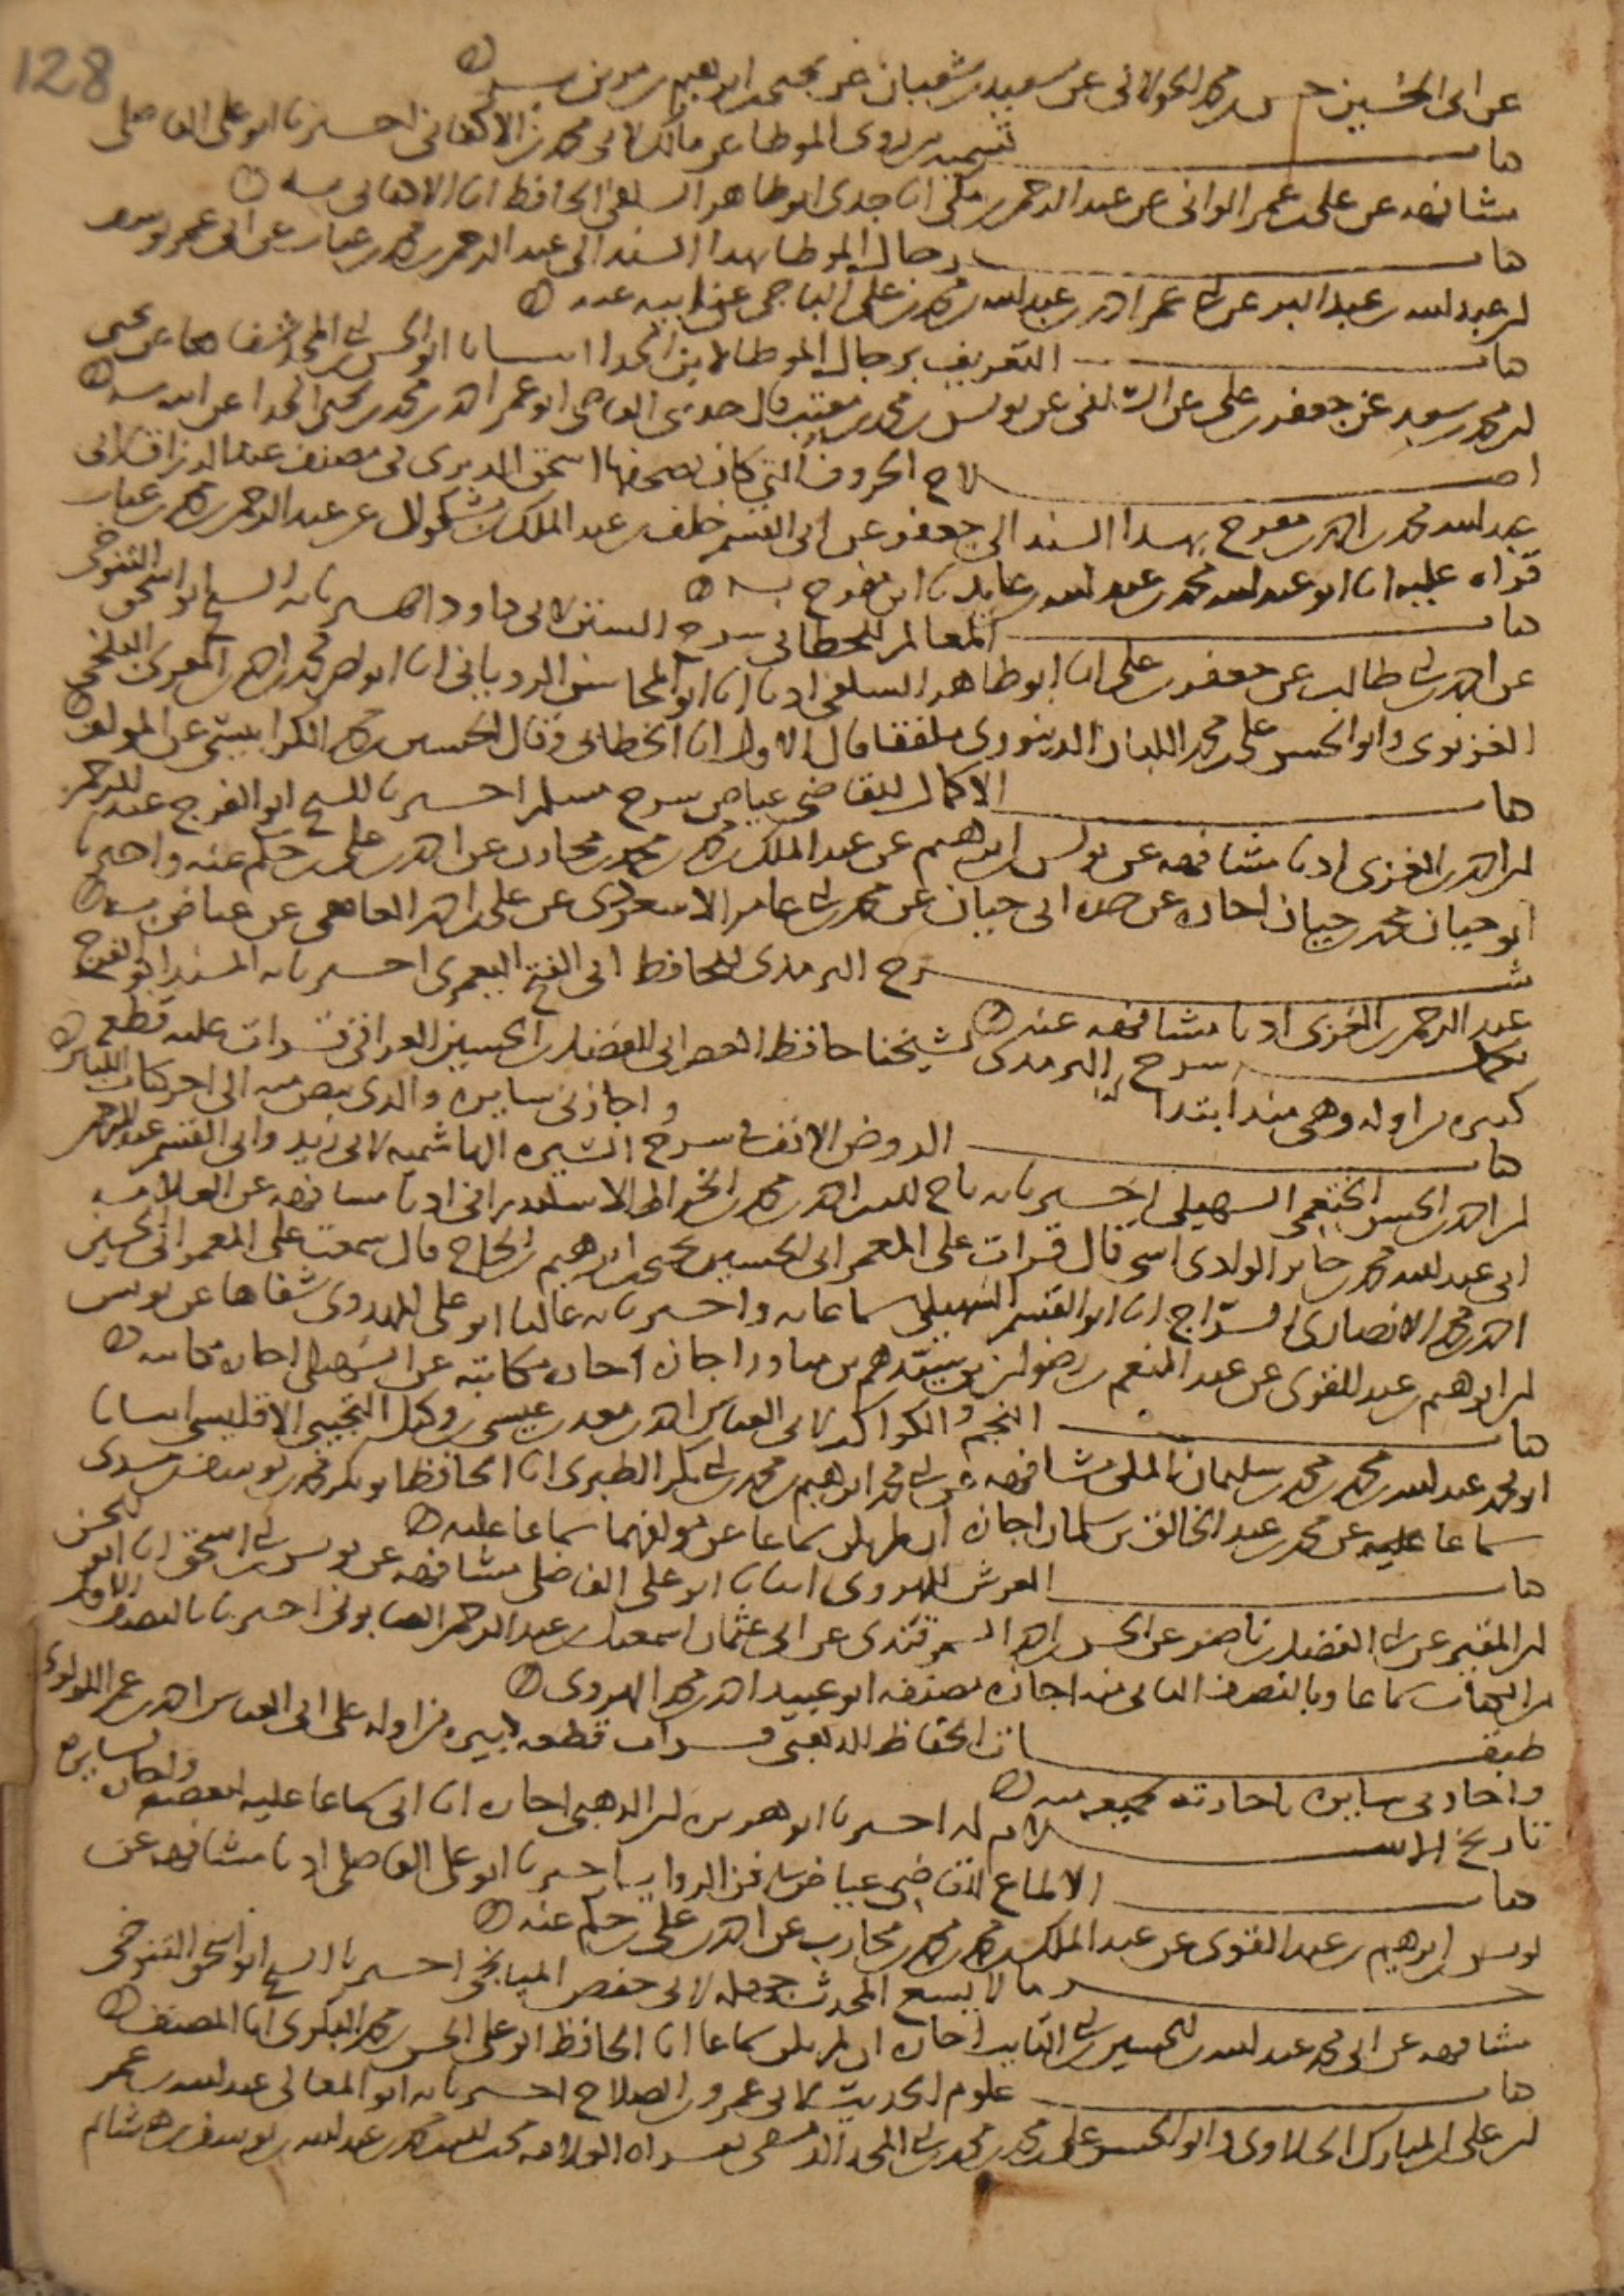 128
عن ابي الحسين بن محمد الخولاني عن سعيد بن شعبان عن يحيى بن ابرهيم بن مزين به
كتاب تسمية من روى الموطا عن مالك لابي محمد بن الاكفاني اخبرنا ابو علي الفاضلي
مشافهه عن علي بن عمر الواني عن عبد الرحمن بن مكي انا جدي ابو طاهر السلفي الحافظ انا الاكفاني به
كتاب رجال الموطا بهذا السند الى عبد الرحمن بن محمد بن عتاب عن ابي عمر يوسف
بن عبد الله بن عبد البر عن ابي عمر احمد بن عبد الله بن محمد بن علي الباجي عن ابيه عنه
كتاب التعريف برجال الموطا لابن الحذا انبانا ابو الحسن بن ابي المجد شفاها عن يحيى
بن محمد بن سعد عن جعفر بن علي عن السلفي عن يونس بن محمد بن مغيث قال حدثني القاضي ابو عمر احمد بن محمد بن يحيى الحذا عن ابيه به
اصلاح الحروف التي كان يصحفها اسحق الدبري في مصنف عبد الرزاق لابي
عبد الله محمد بن احمد بن مفرج بهذا السند الى جعفر عن ابي القسم خلف بن عبد الملك بن بشكوال عن عبد الرحمن بن محمد بن عتاب
قراه عليه انا ابو عبد الله محمد بن عبد الله بن عابد نا ابن مفرج به
كتاب المعالم للخطابي شرح السنن لابي داود اخبرنا به الشيخ ابو اسحق التنوخي
عن احمد بن ابي طالب عن جعفر بن علي انا ابو طاهر السلفي اذنا انا ابو المحاسن الروياني انا ابو نصر محمد بن احمد المقرى البلخي
الغزنوي وابو الحسن علي بن محمد اللبان الدينوري ملفقا قال الاول انا الخطابي وقال الحسين بن محمد الكرابيسي عن المولف
كتاب الاكمال للقاضي عياض شرح مسلم اخبرنا الشيخ ابو الفرج عبد الرحمن
بن احمد الغزي اذنا مشافهه عن يونس بن ابرهيم عن عبد الملك بن محمد بن محمد بن محارب عن احمد بن علي بن حكم عنه واخبرنا
ابو حيان محمد بن حيان اجازه عن جده ابي حيان عن محمد بن ابي عامر الاشعري عن علي بن احمد الغافقي عن عياض به
شرح الترمذي للحافظ ابي الفتح اليعمري اخبرنا به المسند ابو الفرج
عبد الرحمن الغزي اذنا مشافهه عنه
تكملة شرح الترمذي لشيخنا حافظ العصر ابي الفضل بن الحسين العراقي قرات عليه قطع
كثيره من اوله وهي منذ ابتدا واجازني سايره والذي بيض منه الى اخر كتاب اللباس
كتاب الروض الانف في شرح السيره الهاشميه لابي زيد وابي القسم عبد الرحمن
بن احمد بن الحسن الخثعمي السهيلي اخبرنا به تاج الدين احمد بن محمد بن الخراط الاسكندراني اذنا مشافهه عن العلامه
ابي عبد الله محمد بن جابر الوادي اشي قال قرات على المعمر ابي الحسين يحيى بن ابرهيم بن الحاج قال سمعت على المعمر ابي الحسين
احمد بن محمد الانصاري السراج انا ابو القسم السهيلي سماعا به واخبرنا به عاليا ابو علي المهدوي شفاها عن يونس
بن ابرهيم بن عبد القوي عن عبد المنعم بن رضوان بن سيدهم بن مناد اجازه مكاتبه عن السهيلي اجازه مكاتبه
كتاب النجم والكواكب لابي العباس احمد بن معد بن عيسى بن وكيل التجيبي الاقليشي انبانا
ابو محمد عبد الله بن محمد بن محمد بن سليمان المكي مشافهه عن ابي محمد ابرهيم بن محمد بن ابي بكر الطبري انا الحافظ ابو بكر محمد بن يوسف بن مسدي
سماعا عليه عن محمد بن عبد الخالق بن سلمان اجازه ان لم يكن سماعا عن مولفهما سماعا عليه
كتاب العرش للهروي انبانا ابو علي الفاضلي مشافهه عن يونس بن ابي اسحق انا ابو الحسن
بن المقير عن ابي الفضل بن ناصر عن الحسن بن احمد السمرقندي عن ابي عثمان اسمعيل بن عبد الرحمن الصابوني اخبرنا بالنصف الاول
من الكتاب سماعا وبالنصف الثاني منه اجازه مصنفه ابو عبيد احمد بن محمد الهروي
طبقات الحفاظ للذهبي قرات قطعه كبيره من اوله على ابي العباس احمد بن عمر اللولوي
واجاز لي سايره باجازته لجميعه منه
تاريخ الاسلام له اخبرنا ابو هريره بن الذهبي اجازه انا ابي سماعا عليه لبعضه واجازه لسايره
كتاب الالماع للقاضي عياض في فن الروايه اخبرنا ابو علي الفاضلي اذنا مشافهه عن
يونس بن ابرهيم بن عبد القوي عن عبد الملك بن محمد بن محمد بن محارب عن احمد بن علي بن حكم عنه
جزء ما لا يسع المحدث جهله لابي حفص الميانجي اخبرنا الشيخ ابو اسحق التنوخي
مشافهه عن ابي محمد عبد الله بن الحسين بن ابي التايب اجازه ان لم يكن سماعا انا الحافظ ابو علي الحسن بن محمد البكري انا المصنف
كتاب علوم الحديث لابي عمرو بن الصلاح اخبرنا به ابو المعالي عبد الله بن عمر
بن علي بن المبارك الحلاوي وابو الحسن علي بن محمد بن محمد بن ابي المجد الدمشقي بقراه العلامه محب الدين محمد بن عبد الله بن يوسف بن هشام